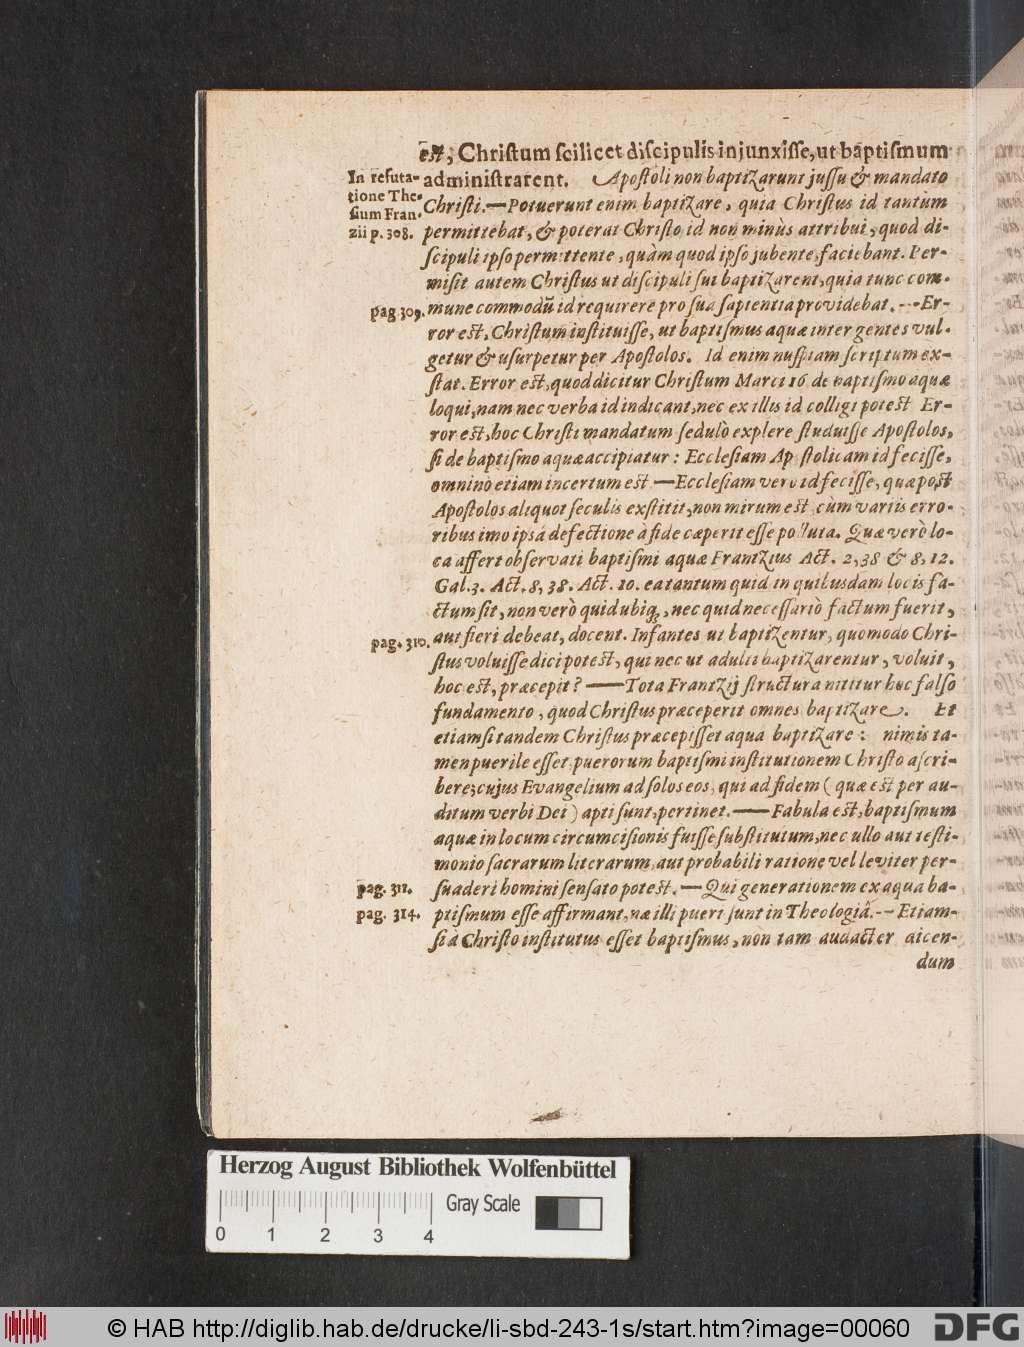 est, Christum scilicet discipulis injunxisse, ut baptismum
In refuta-
tione The-
sium Fran-
zii p. 308.
administrarent. Apostoli non baptizarunt jussu & mandato
Christi.—Potuerunt enim baptizare, quia Christus id tantum
permittebat, & poterat Christo id non minùs attribui, quod di-
scipuli ipso permittente, quàm quod ipso jubente, faciebant. Per-
misit autem Christus ut discipuli sui baptizarent, quia tunc com-
pag 309.
mune commodū id requirere pro sua sapientia providebat. --Er-
ror est, Christum instituisse, ut baptismus aquæ inter gentes vul-
getur & usurpetur per Apostolos. Id enim nuspiam scriptum ex-
stat. Error est, quod dicitur Christum Marci 16 de baptismo aquæ
loqui, nam nec verba id indicant, nec ex illis id colligi potest Er-
ror est, hoc Christi mandatum sedulò explere studuisse Apostolos,
si de baptismo aquæ accipiatur: Ecclesiam Apostolicam id fecisse,
omnino etiam incertum est —Ecclesiam verò id fecisse, quæ post
Apostolos aliquot seculis exstitit, non mirum est cùm variis erro-
ribus imo ipsâ defectione à fide cæperit esse polluta. Quæ verò lo-
ca affert observati baptismi aquæ Frantzius Act. 2, 38 & 8, 12.
Gal. 3. Act. 8, 38. Act. 10. ea tantum quid in quibusdam locis fa-
ctum sit, non verò quid ubiq;, nec quid necessariò factum fuerit,
pag. 310.
aut fieri debeat, docent. Infantes ut baptizentur, quomodo Chri-
stus voluisse dici potest, qui nec ut adulti baptizarentur, voluit,
hoc est, præcepit? —Tota Frantzij structura nititur hoc falso
fundamento, quod Christus præceperit omnes baptizare. Et
etiamsi tandem Christus præcepisset aqua baptizare: nimis ta-
men puerile esset puerorum baptismi institutionem Christo ascri-
bere; cujus Evangelium ad solos eos, qui ad fidem (quæ est per au-
ditum verbi Dei) apti sunt, pertinet. —Fabula est, baptismum
aquæ in locum circumcisionis fuisse substitutum, nec ullo aut testi-
monio sacrarum literarum, aut probabili ratione vel leviter per-
pag. 311.
suaderi homini sensato potest. — Qui generationem ex aqua ba-
pag. 314.
ptismum esse affirmant, næ illi pueri sunt in Theologiâ. -- Etiam-
si à Christo institutus esset baptismus, non tam audacter dicen-
dum
Herzog August Bibliothek Wolfenbüttel
Gray Scale
0 1 2 3 4
© HAB http://diglib.hab.de/drucke/li-sbd-243-1s/start.htm?image=00060
DFG